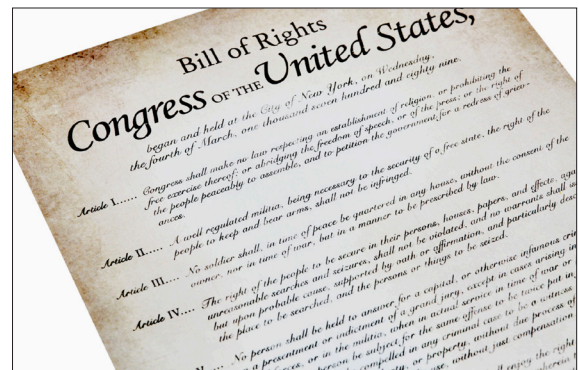 Bill of Rights
Congress OF THE United States,
began and held at the City of New York, on Wednesday,
the fourth of March, one thousand seven hundred and eighty nine.
Article I...... Congress shall make no law respecting an establishment of religion, or prohibiting the
free exercise thereof; or abridging the freedom of speech, or of the press; or the right of
the people peaceably to assemble, and to petition the government for a redress of griev-
ances.
Article II..... A well regulated militia, being necessary to the security of a free state, the right of the
people to keep and bear arms, shall not be infringed.
Article III.... No soldier shall, in time of peace be quartered in any house, without the consent of the
owner, nor in time of war, but in a manner to be prescribed by law.
Article IV.... The right of the people to be secure in their persons, houses, papers, and effects, aga
unreasonable searches and seizures, shall not be violated, and no warrants shall is
but upon probable cause, supported by oath or affirmation, and particularly desc
the place to be searched, and the persons or things to be seized.
No person shall be held to answer for a capital, or otherwise infamous cri
a presentment or indictment of a grand jury, except in cases arising in
forces, or in the militia, when in actual service in time of war or
person be subject for the same offense to be twice put in
compelled in any criminal case to be a witness
ty, or property, without due process of
use, without just compensation
ll enjoy the right